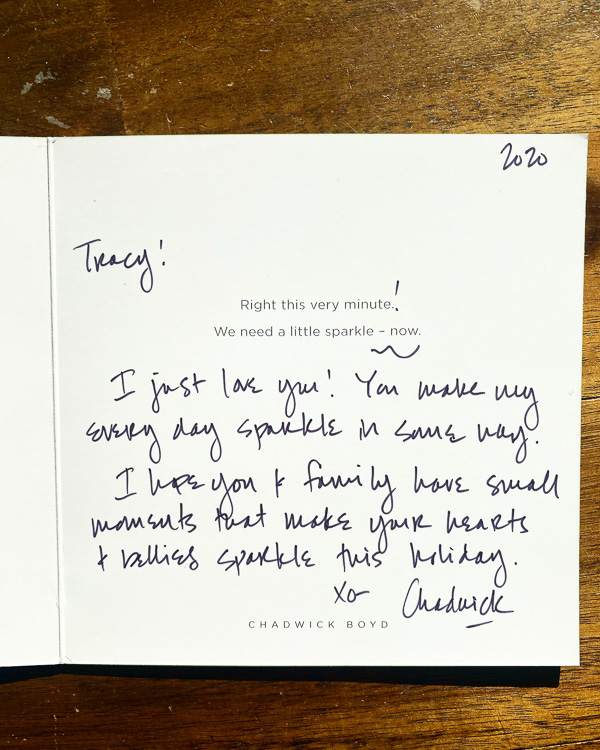 2020
Tracy!
Right this very minute.!
We need a little sparkle – now.
I just love you! You make my
every day sparkle in some way.
I hope you & family have small
moments that make your hearts
& bellies sparkle this holiday.
xo Chadwick
CHADWICK BOYD